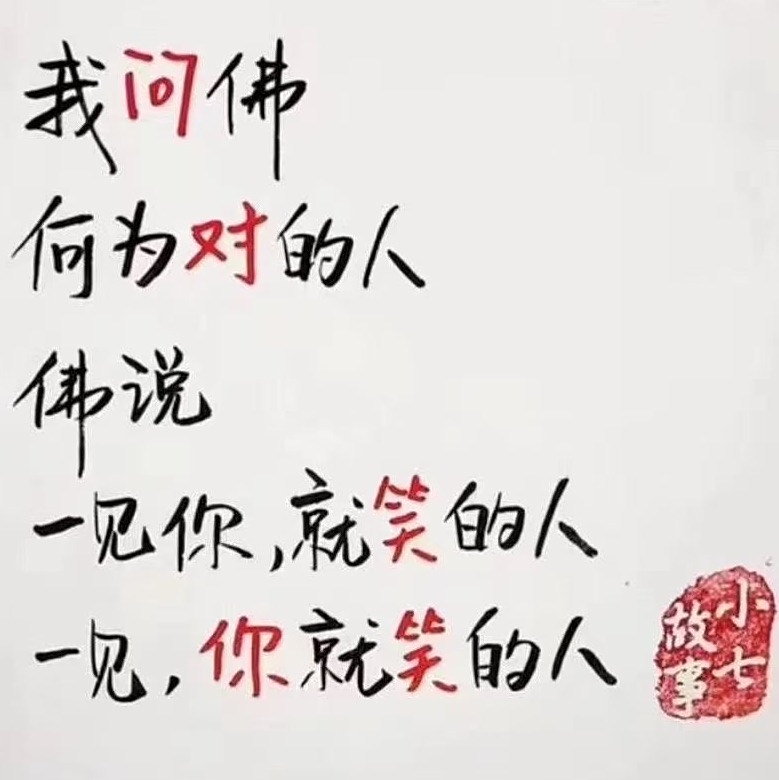 我问佛
何为对的人
佛说
一见你,就笑的人
一见,你就笑的人
小七
故事